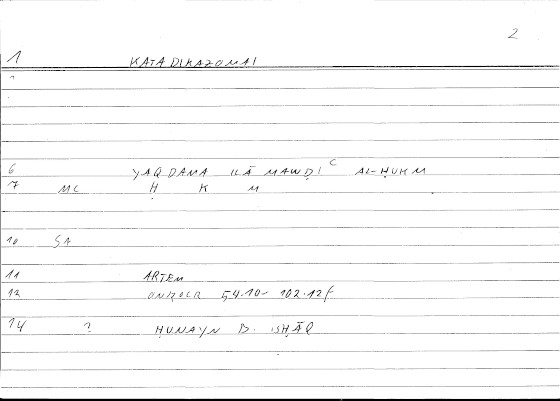 2
1 KATADIKAZOMAI
6 YAQDAMA ILĀ MAWḌIᶜ AL-ḤUKM
7 MC Ḥ K M
10 SA
11 ARTEM
12 ONIROCR 54.10- 102.12f
14 ? ḤUNAYN B. ISḤĀQ